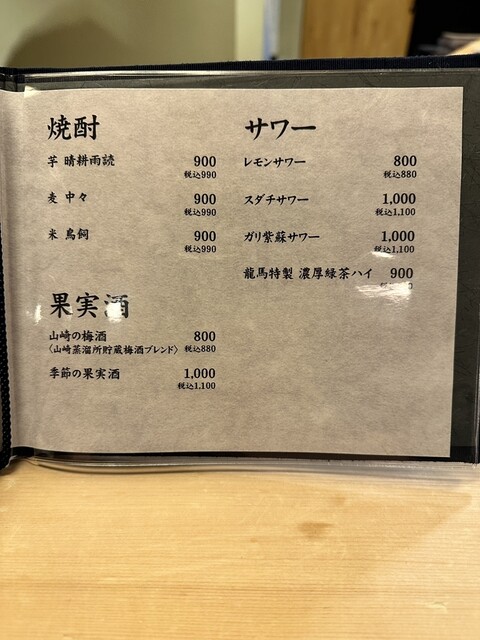 焼酎
芋 晴耕雨読 900
税込990
麦 中々 900
税込990
米 鳥飼 900
税込990
果実酒
山崎の梅酒 800
〈山崎蒸溜所貯蔵梅酒ブレンド〉 税込880
季節の果実酒 1,000
税込1,100
サワー
レモンサワー 800
税込880
スダチサワー 1,000
税込1,100
ガリ紫蘇サワー 1,000
税込1,100
龍馬特製 濃厚緑茶ハイ 900